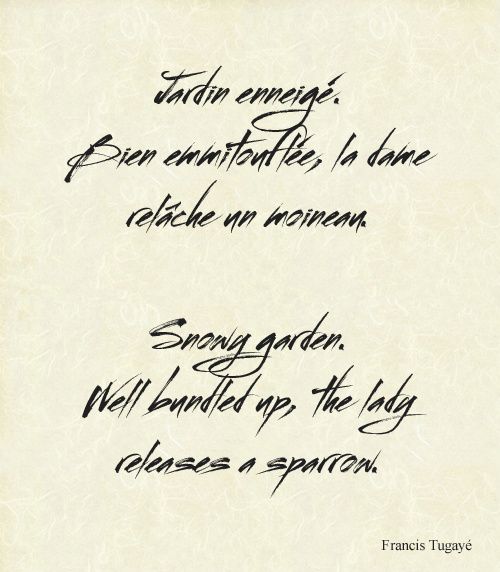 Jardin enneigé.
Bien emmitouflée, la dame
relâche un moineau.
Snowy garden.
Well bundled up, the lady
releases a sparrow.
Francis Tugayé